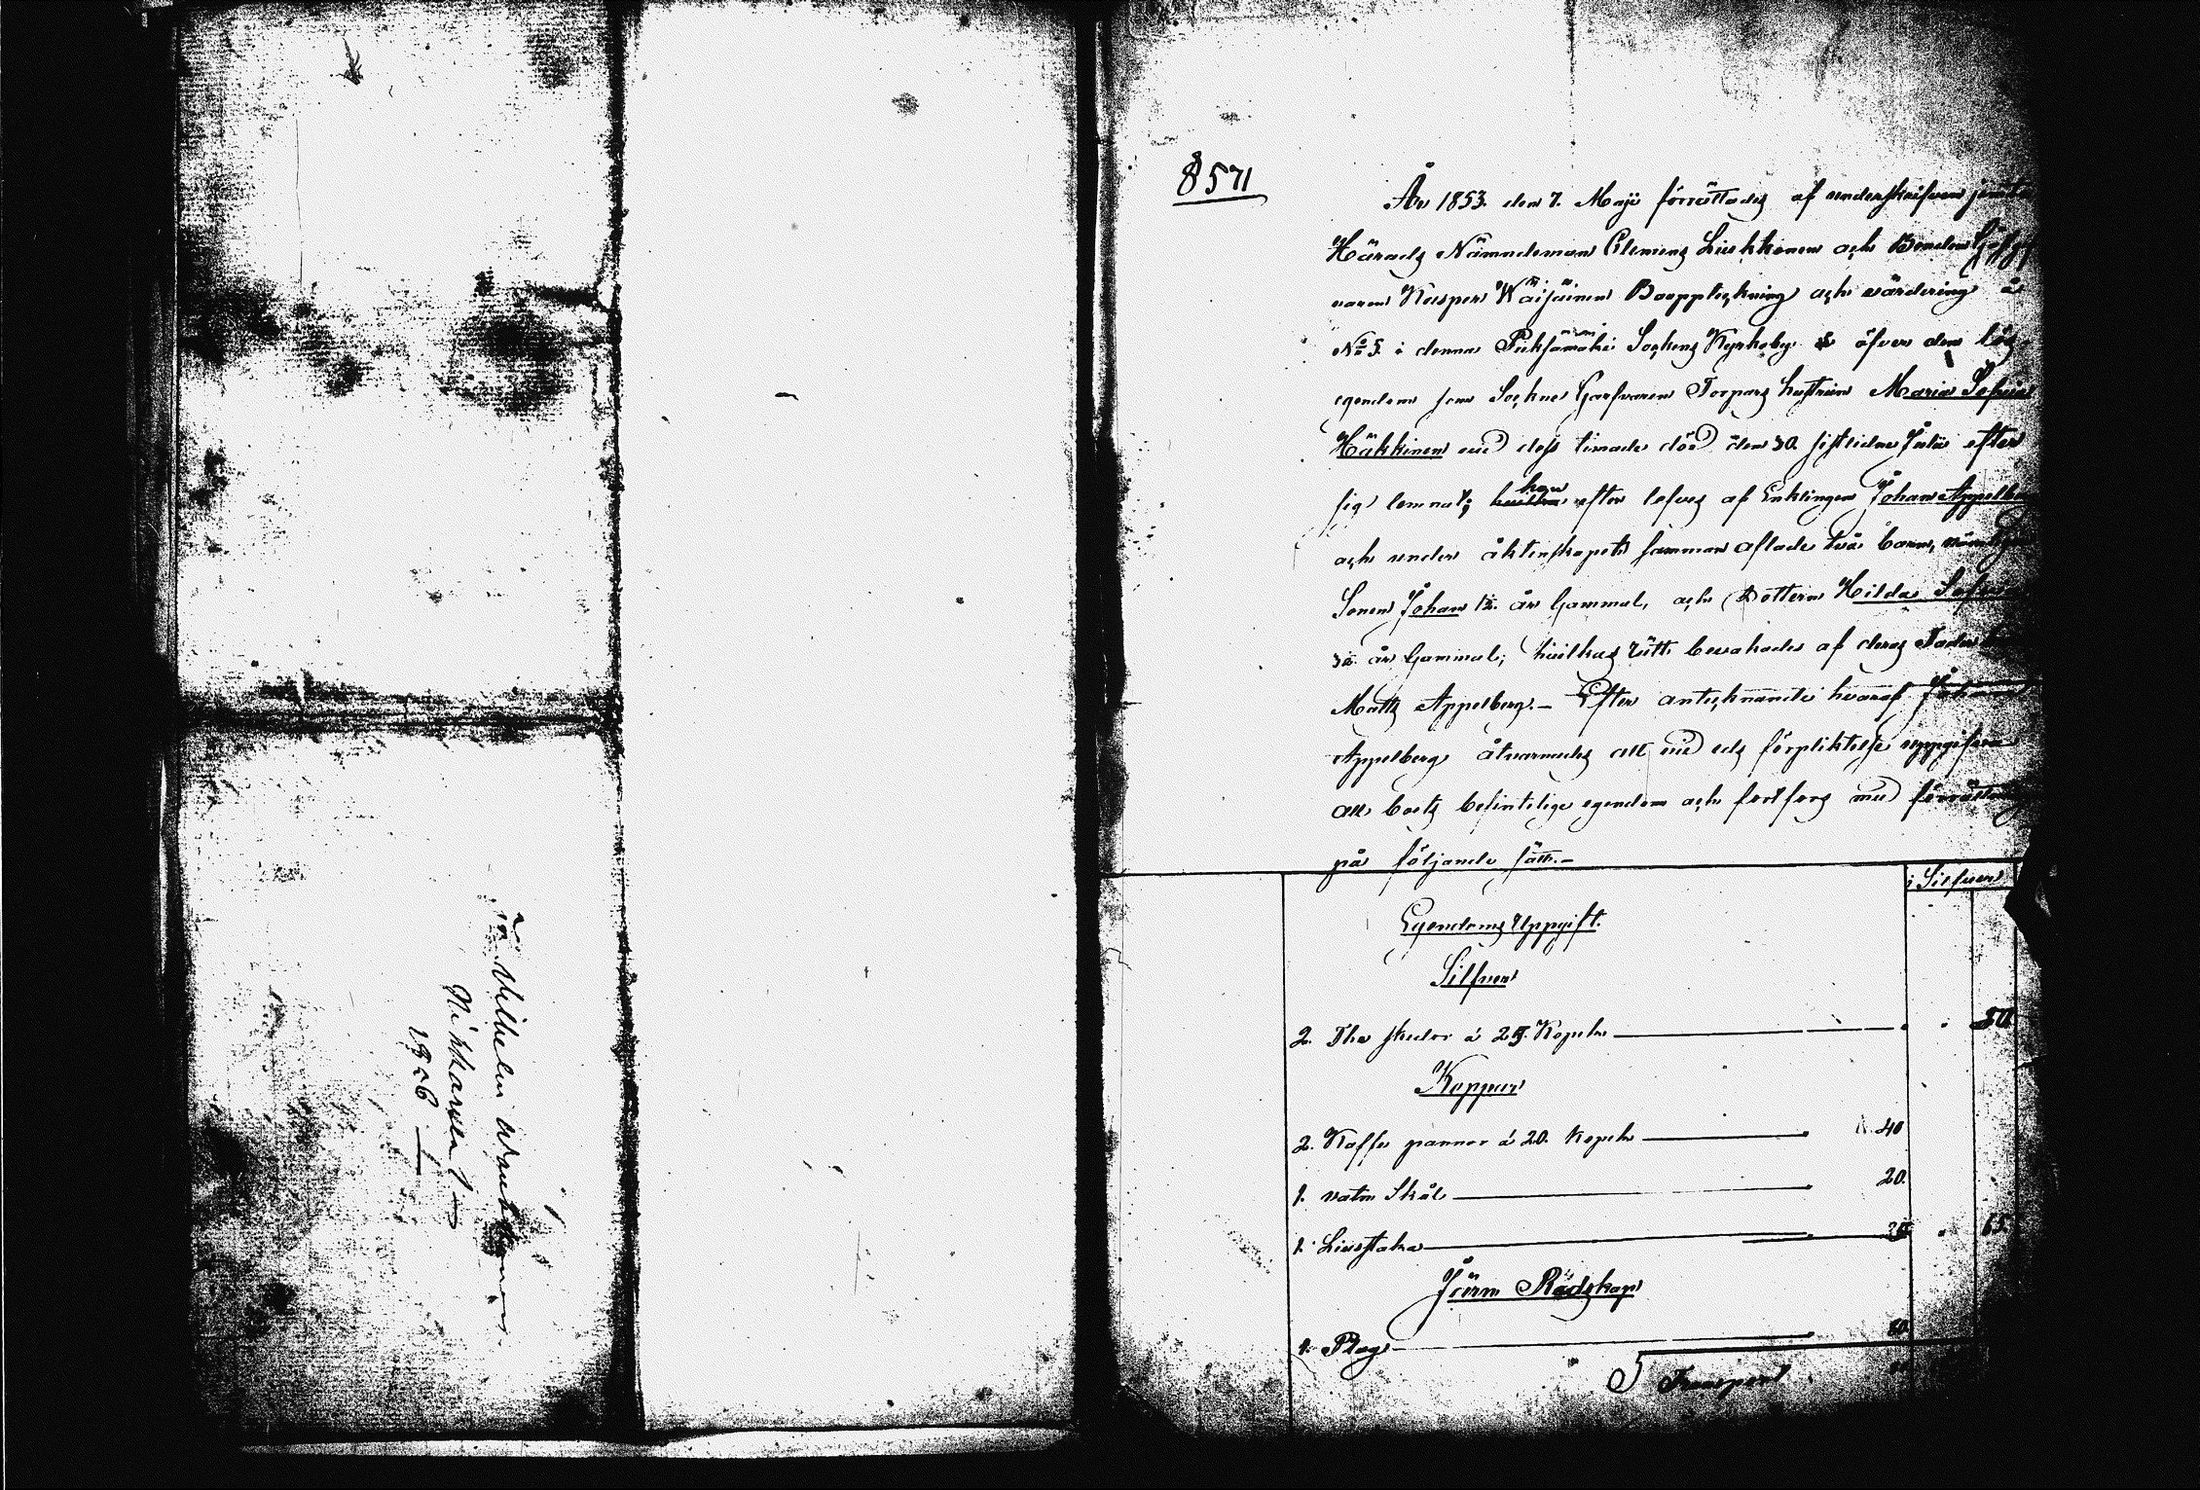 Wilhelm
Nikkarinen
1826
8571
År 1853. den 7. Maji förrättades af underskrifven jemte
Härads Nämndeman Clemens Liukkonen och Bonden
varen Kasper Wäisäinen Bouppteckning och värdering å
No 5. i denna Pieksämäki Sockens Kyrkoby öfver den lös
egendom som Sockne Garfvaren Torpars hustrun Maria Sofia
Häkkinen vid dess timade död den 30. sistlidne Julii efter
sig lemnat; hon efter lefves af Enklingen Johan Appelberg
och under äktenskapet samman aflade två barn,
Sonen Johan 12. år Gammal, och Dottern Hilda Sofia
3½ år Gammal; hvilkas rätt bevakades af deras Fader
Matts Appelberg. – Efter antecknande hvaraf Johan
Appelberg åtvarnades att vid eds förpliktelse uppgifva
all boets befintelige egendom och fortfors med förrättning
på följande sätt. –
i Silfver
Egendoms Uppgift.
Silfver
2. The skedar á 25. Kopek 50
Koppar
2. Kaffe pannor á 20. Kopek 40
1. vatn Skål 20.
1. Liusstaka 65.
Jern Redskap
1. Plog
Transport